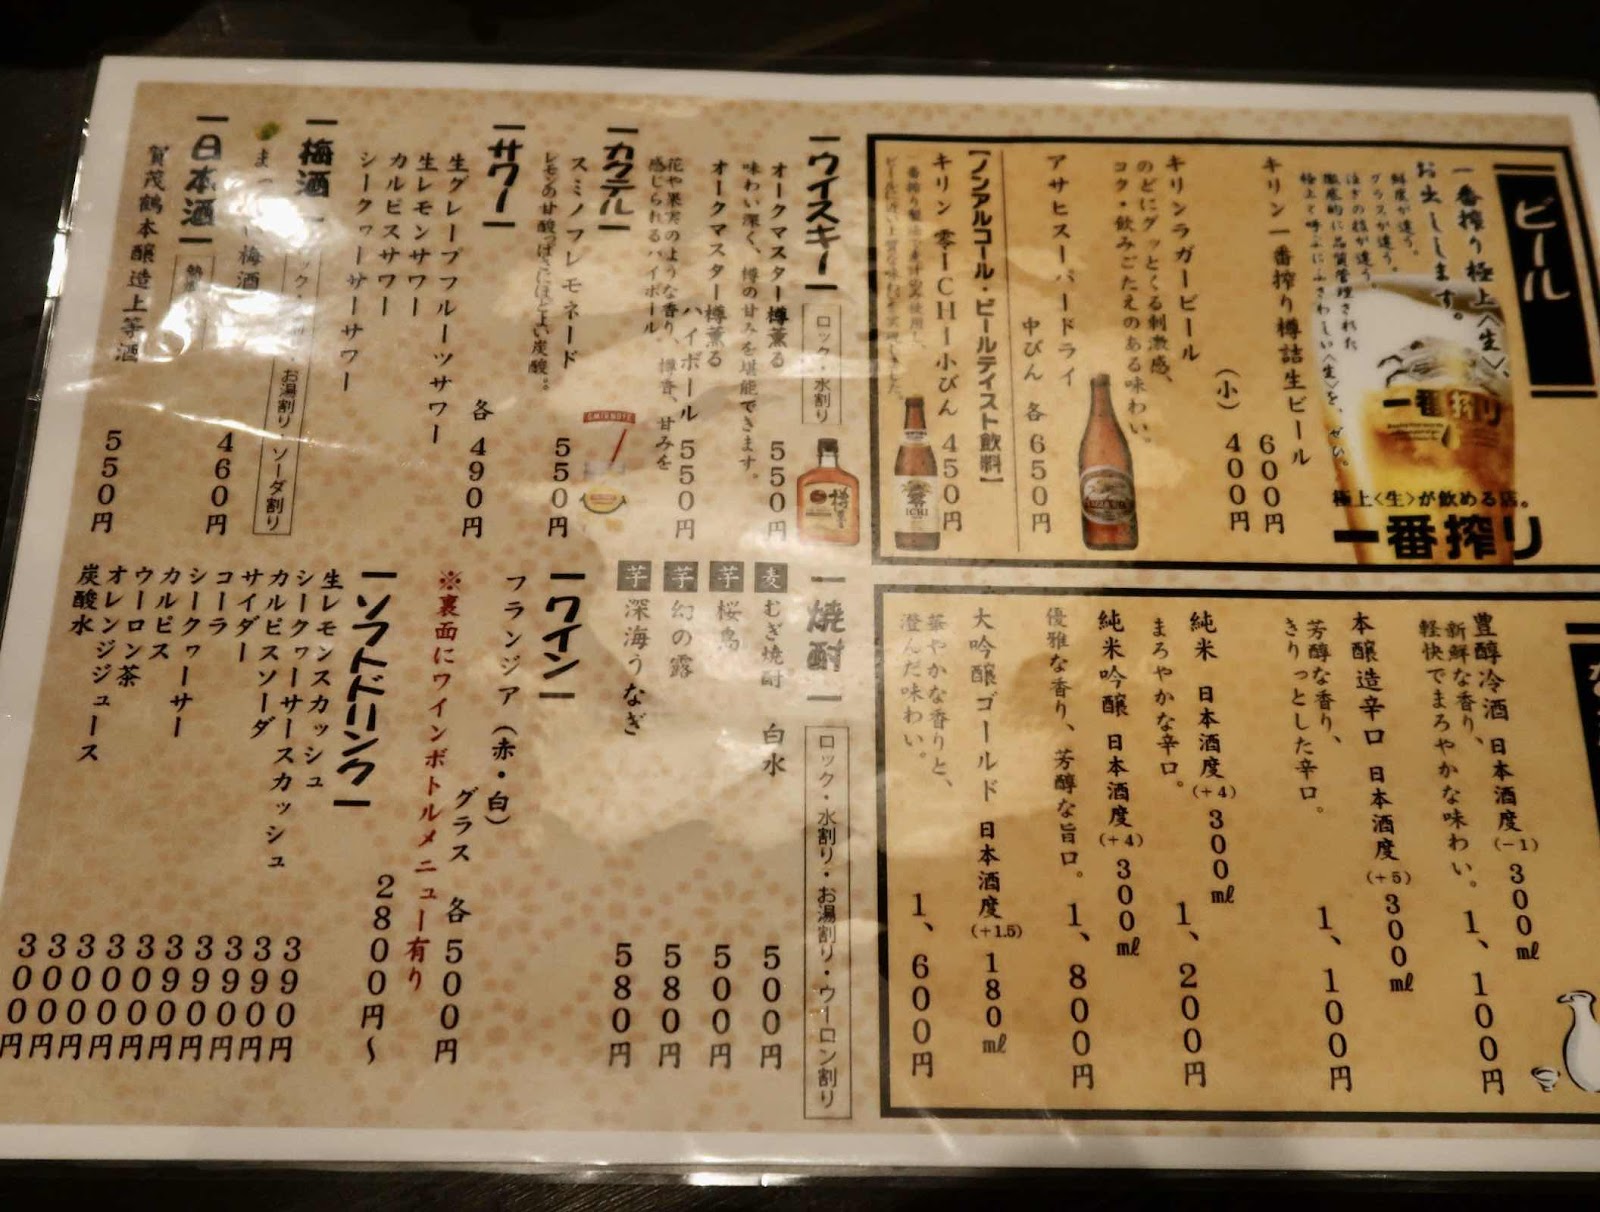 ビール
一番搾り極上〈生〉、
お出しします。
鮮度が違う。
グラスが違う。
注ぎの技が違う。
徹底的に品質管理された
極上と呼ぶにふさわしい〈生〉を、ぜひ。
一番搾り
極上〈生〉が飲める店。
一番搾り
キリン一番搾り樽詰生ビール
600円
(小) 400円
キリンラガービール
のどにグッとくる刺激感、
コク・飲みごたえのある味わい。
アサヒスーパードライ
中びん 各650円
【ノンアルコール・ビールテイスト飲料】
キリン 零ICHI 小びん 450円
豊醇冷酒 日本酒度(-1) 300㎖
新鮮な香り、
軽快でまろやかな味わい。 1、100円
本醸造辛口 日本酒度(+5) 300㎖
芳醇な香り、
きりっとした辛口。 1、100円
純米 日本酒度(+4) 300㎖
まろやかな辛口。 1、200円
純米吟醸 日本酒度(+4) 300㎖
優雅な香り、芳醇な旨口。 1、800円
大吟醸ゴールド 日本酒度(+1.5) 180㎖
華やかな香りと、
澄んだ味わい。 1、600円
ウイスキー
ロック・水割り
オークマスター樽薫る 550円
味わい深く、樽の甘みを堪能できます。
オークマスター樽薫る
ハイボール 550円
花や果実のような香り、樽香、甘みを
感じられるハイボール
カクテル
スミノフレモネード 550円
レモンの甘酸っぱさにほどよい炭酸。
SMIRNOFF
サワー
各490円
生グレープフルーツサワー
生レモンサワー
カルピスサワー
シークヮーサーサワー
梅酒
お湯割り・ソーダ割り
梅酒 460円
日本酒
賀茂鶴本醸造上等酒 550円
焼酎
ロック・水割り・お湯割り・ウーロン割り
麦 むぎ焼酎 白水 500円
芋 桜島 500円
芋 幻の露 580円
芋 深海うなぎ 580円
ワイン
フランジア(赤・白)
グラス 各500円
※裏面にワインボトルメニュー有り
2800円〜
ソフトドリンク
生レモンスカッシュ 390円
シークヮーサースカッシュ 390円
カルピスソーダ 390円
サイダー 390円
コーラ 390円
シークヮーサー 300円
カルピス 300円
ウーロン茶 300円
オレンジジュース 300円
炭酸水 300円